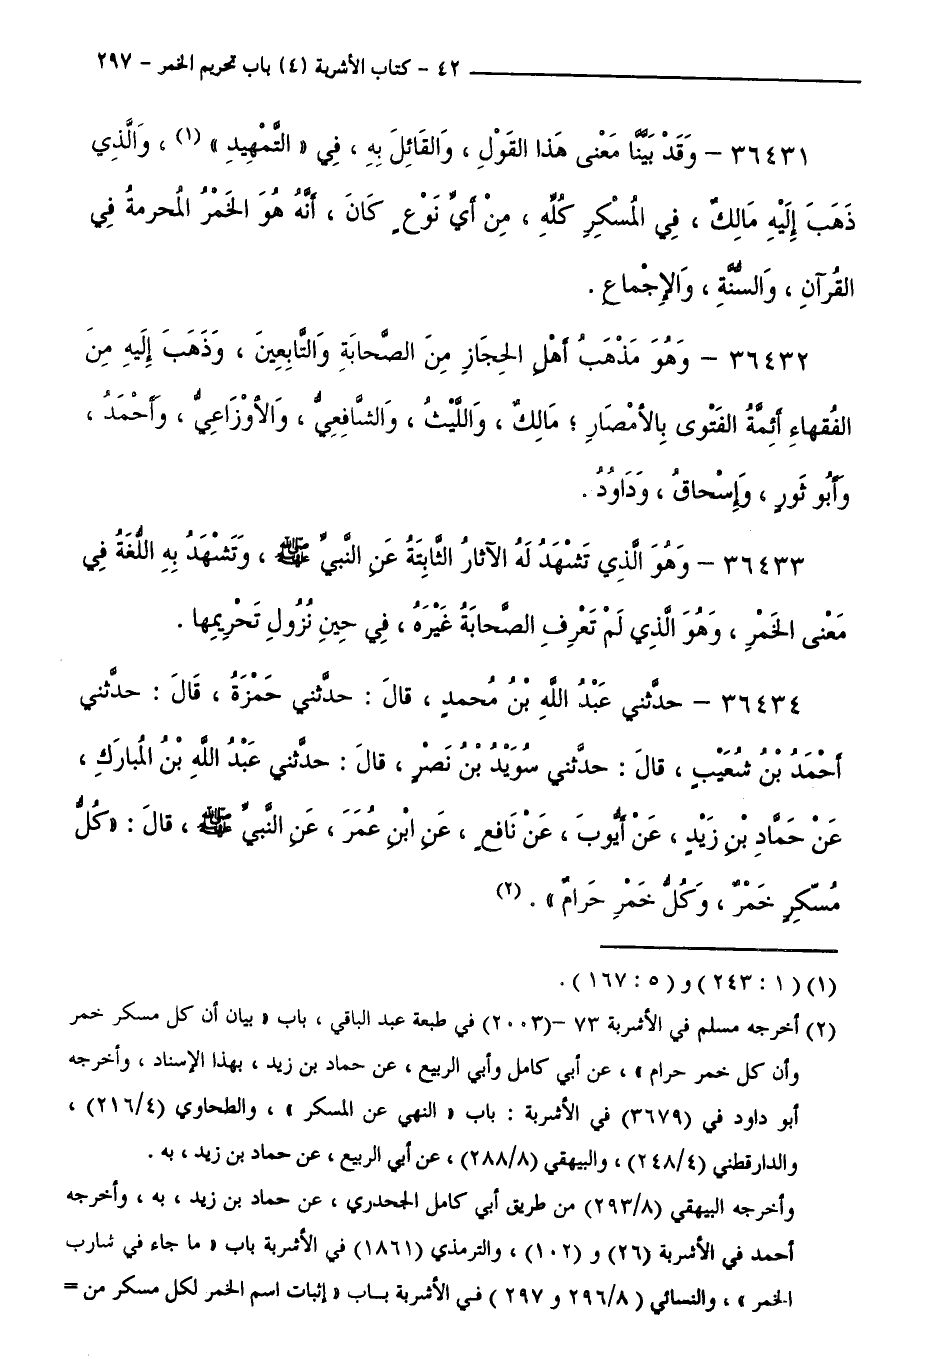 ٤٢ - كتاب الأشربة (٤) باب تحريم الخمر - ٢٩٧
٣٦٤٣١ - وَقَدْ بَيَّنَّا مَعْنى هَذا القَوْلِ ، وَالقَائِلَ بِهِ ، فِي « التَّمْهِيدِ » (١) ، وَالَّذِي
ذَهَبَ إِلَيْهِ مَالِكٌ ، فِي المُسْكِرِ كُلِّهِ ، مِنْ أَيِّ نَوْعٍ كَانَ ، أَنَّهُ هُوَ الخَمْرُ المُحرمةُ فِي
القُرآنِ ، وَالسُّنَّةِ ، وَالإِجْماعِ .
٣٦٤٣٢ - وَهُوَ مَذْهَبُ أَهْلِ الحِجَازِ مِنَ الصَّحابَةِ وَالتَّابِعِينَ ، وَذَهَبَ إِلَيهِ مِنَ
الفُقهاءِ أَئِمَّةُ الفَتْوى بِالأَمْصَارِ ؛ مَالِكٌ ، وَاللَّيْثُ ، وَالشَّافِعِيُّ ، وَالأَوْزَاعِيُّ ، وَأَحْمَدُ ،
وَأَبُو ثَورٍ ، وَإِسْحاقُ ، وَدَاوُدُ .
٣٦٤٣٣ - وَهُوَ الَّذِي تَشْهَدُ لَهُ الآثارُ الثَّابِتَةُ عَنِ النَّبِيِّ ﷺ ، وَتَشْهَدُ بِهِ اللُّغَةُ فِي
مَعْنى الخَمْرِ ، وَهُوَ الَّذِي لَمْ تَعْرِفِ الصَّحابَةُ غَيْرَهُ ، فِي حِينِ نُزُولِ تَحْرِيمِها .
٣٦٤٣٤ - حدَّثني عَبْدُ اللَّهِ بْنُ مُحمدٍ ، قالَ : حدَّثني حَمْزَةُ ، قَالَ : حدَّثني
أَحْمَدُ بْنُ شُعَيْبٍ ، قالَ : حدَّثني سُوَيْدُ بْنُ نَصْرٍ ، قالَ : حدَّثني عَبْدُ اللَّهِ بْنُ المُبارَكِ ،
عَنْ حَمَّادِ بْنِ زَيْدٍ ، عَنْ أَيُّوبَ ، عَنْ نَافِعٍ ، عَنِ ابْنِ عُمَرَ ، عَنِ النَّبِيِّ ﷺ ، قالَ : « كُلُّ
مُسْكِرٍ خَمْرٌ ، وَكُلُّ خَمْرٍ حَرامٌ » . (٢)
(١) ( ١ : ٢٤٣ ) و ( ٥ : ١٦٧ ) .
(٢) أخرجه مسلم في الأشربة ٧٣ -(٢٠٠٣) في طبعة عبد الباقي ، باب « بيان أن كل مسكر خمر
وأن كل خمر حرام » ، عن أبي كامل وأبي الربيع ، عن حماد بن زيد ، بهذا الإسناد ، وأخرجه
أبو داود في (٣٦٧٩) في الأشربة : باب « النهي عن المسكر » ، والطحاوي (٢١٦/٤) ،
والدارقطني (٢٤٨/٤) ، والبيهقي (٢٨٨/٨) ، عن أبي الربيع ، عن حماد بن زيد ، به .
وأخرجه البيهقي (٢٩٣/٨) من طريق أبي كامل الجحدري ، عن حماد بن زيد ، به ، وأخرجه
أحمد في الأشربة (٢٦) و (١٠٢) ، والترمذي (١٨٦١) في الأشربة باب « ما جاء في شارب
الخمر » ، والنسائي ( ٢٩٦/٨ و ٢٩٧ ) في الأشربة باب « إثبات اسم الخمر لكل مسكر من =